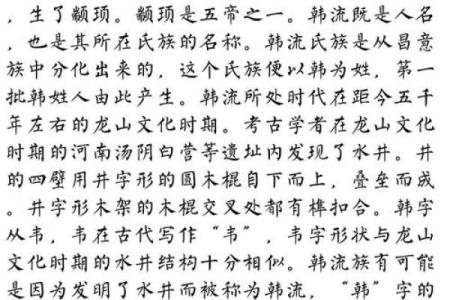 ，生了颛顼。颛顼是五帝之一。韩流既是人名
，也是其所在氏族的名称。韩流氏族是从昌意
族中分化出来的，这个氏族便以韩为姓，第一
批韩姓人由此产生。韩流所处时代在距今五千
年左右的龙山文化时期。考古学者在龙山文化
时期的河南汤阴白营等遗址内发现了水井。井
的四壁用井字形的圆木棍自下而上，叠垒而成
。井字形木架的木棍交叉处都有榫扣合。韩字
从韦，韦在古代写作“韦”，韦字形状与龙山
文化时期的水井结构十分相似。韩流族有可能
是因为发明了水井而被称为韩流，“韩”字的